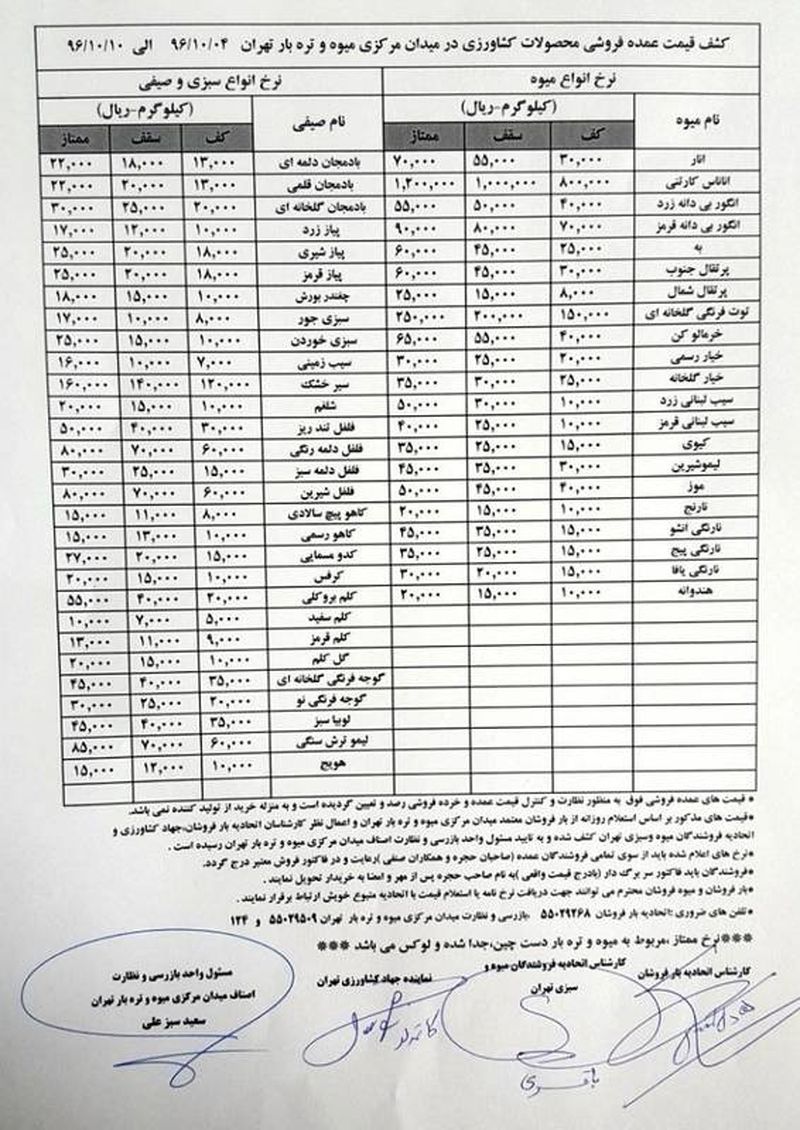 کشف قیمت عمده فروشی محصولات کشاورزی در میدان مرکزی میوه و تره بار تهران ۹۶/۱۰/۰۴ الی ۹۶/۱۰/۱۰
نرخ انواع میوه نرخ انواع سبزی و صیفی
نام میوه (کیلوگرم-ریال) نام صیفی (کیلوگرم-ریال)
کف سقف ممتاز کف سقف ممتاز
انار ۳۰,۰۰۰ ۵۵,۰۰۰ ۷۰,۰۰۰ بادمجان دلمه ای ۱۳,۰۰۰ ۱۸,۰۰۰ ۲۲,۰۰۰
اناناس کارتنی ۸۰۰,۰۰۰ ۱,۰۰۰,۰۰۰ ۱,۲۰۰,۰۰۰ بادمجان قلمی ۱۳,۰۰۰ ۲۰,۰۰۰ ۲۲,۰۰۰
انگور بی دانه زرد ۴۰,۰۰۰ ۵۰,۰۰۰ ۵۵,۰۰۰ بادمجان گلخانه ای ۲۰,۰۰۰ ۲۵,۰۰۰ ۳۰,۰۰۰
انگور بی دانه قرمز ۷۰,۰۰۰ ۸۰,۰۰۰ ۹۰,۰۰۰ پیاز زرد ۱۰,۰۰۰ ۱۲,۰۰۰ ۱۷,۰۰۰
به ۲۵,۰۰۰ ۴۵,۰۰۰ ۶۰,۰۰۰ پیاز شیری ۱۸,۰۰۰ ۲۰,۰۰۰ ۲۵,۰۰۰
پرتقال جنوب ۳۰,۰۰۰ ۴۵,۰۰۰ ۶۰,۰۰۰ پیاز قرمز ۱۸,۰۰۰ ۲۰,۰۰۰ ۲۵,۰۰۰
پرتقال شمال ۸,۰۰۰ ۱۵,۰۰۰ ۲۵,۰۰۰ چغندر بورش ۱۰,۰۰۰ ۱۵,۰۰۰ ۱۸,۰۰۰
توت فرنگی گلخانه ای ۱۵۰,۰۰۰ ۲۰۰,۰۰۰ ۲۵۰,۰۰۰ سبزی جور ۸,۰۰۰ ۱۰,۰۰۰ ۱۷,۰۰۰
خرمالو کن ۴۰,۰۰۰ ۵۵,۰۰۰ ۶۵,۰۰۰ سبزی خوردن ۱۰,۰۰۰ ۱۵,۰۰۰ ۲۵,۰۰۰
خیار رسمی ۲۰,۰۰۰ ۲۵,۰۰۰ ۳۰,۰۰۰ سیب زمینی ۷,۰۰۰ ۱۰,۰۰۰ ۱۶,۰۰۰
خیار گلخانه ۲۵,۰۰۰ ۳۰,۰۰۰ ۳۵,۰۰۰ سیر خشک ۱۲۰,۰۰۰ ۱۴۰,۰۰۰ ۱۶۰,۰۰۰
سیب لبنانی زرد ۱۰,۰۰۰ ۳۰,۰۰۰ ۵۰,۰۰۰ شلغم ۱۰,۰۰۰ ۱۵,۰۰۰ ۲۰,۰۰۰
سیب لبنانی قرمز ۱۰,۰۰۰ ۲۵,۰۰۰ ۴۰,۰۰۰ فلفل تند ریز ۳۰,۰۰۰ ۴۰,۰۰۰ ۵۰,۰۰۰
کیوی ۱۵,۰۰۰ ۲۵,۰۰۰ ۳۵,۰۰۰ فلفل دلمه رنگی ۶۰,۰۰۰ ۷۰,۰۰۰ ۸۰,۰۰۰
لیموشیرین ۳۰,۰۰۰ ۳۵,۰۰۰ ۴۵,۰۰۰ فلفل دلمه سبز ۱۵,۰۰۰ ۲۵,۰۰۰ ۳۰,۰۰۰
موز ۴۰,۰۰۰ ۴۵,۰۰۰ ۵۰,۰۰۰ فلفل شیرین ۶۰,۰۰۰ ۷۰,۰۰۰ ۸۰,۰۰۰
نارنج ۱۰,۰۰۰ ۱۵,۰۰۰ ۲۰,۰۰۰ کاهو پیچ سالادی ۸,۰۰۰ ۱۱,۰۰۰ ۱۵,۰۰۰
نارنگی انشو ۱۵,۰۰۰ ۳۵,۰۰۰ ۴۵,۰۰۰ کاهو رسمی ۱۰,۰۰۰ ۱۳,۰۰۰ ۱۵,۰۰۰
نارنگی پیج ۱۵,۰۰۰ ۲۵,۰۰۰ ۳۵,۰۰۰ کدو مسمایی ۱۵,۰۰۰ ۲۰,۰۰۰ ۲۷,۰۰۰
نارنگی یافا ۱۵,۰۰۰ ۲۰,۰۰۰ ۳۰,۰۰۰ کرفس ۱۰,۰۰۰ ۱۵,۰۰۰ ۲۰,۰۰۰
هندوانه ۱۰,۰۰۰ ۱۵,۰۰۰ ۲۰,۰۰۰ کلم بروکلی ۲۰,۰۰۰ ۴۰,۰۰۰ ۵۵,۰۰۰
کلم سفید ۵,۰۰۰ ۷,۰۰۰ ۱۰,۰۰۰
کلم قرمز ۹,۰۰۰ ۱۱,۰۰۰ ۱۳,۰۰۰
گل کلم ۱۰,۰۰۰ ۱۵,۰۰۰ ۲۰,۰۰۰
گوجه فرنگی گلخانه ای ۳۵,۰۰۰ ۴۰,۰۰۰ ۴۵,۰۰۰
گوجه فرنگی نو ۲۰,۰۰۰ ۲۵,۰۰۰ ۳۰,۰۰۰
لوبیا سبز ۳۵,۰۰۰ ۴۰,۰۰۰ ۴۵,۰۰۰
لیمو ترش سنگی ۶۰,۰۰۰ ۷۰,۰۰۰ ۸۵,۰۰۰
هویج ۱۰,۰۰۰ ۱۲,۰۰۰ ۱۵,۰۰۰
* قیمت های عمده فروشی فوق به منظور نظارت و کنترل قیمت عمده و خرده فروشی رصد و تعیین گردیده است و به منزله خرید از تولید کننده نمی باشد.
*قیمت های مذکور بر اساس استعلام روزانه از بار فروشان معتمد میدان مرکزی میوه و تره بار تهران و اعمال نظر کارشناسان اتحادیه بار فروشان،جهاد کشاورزی و
اتحادیه فروشندگان میوه وسبزی تهران کشف شده و به تایید مسئول واحد بازرسی و نظارت اصناف میدان مرکزی میوه و تره بار تهران رسیده است .
*نرخ های اعلام شده باید از سوی تمامی فروشندگان عمده (صاحبان حجره و همکاران صنفی )رعایت و در فاکتور فروش معتبر درج گردد.
*فروشندگان باید فاکتور سر برگ دار (بادرج قیمت واقعی )به نام صاحب حجره پس از مهر و امضا به خریدار تحویل نمایند .
*بار فروشان و میوه فروشان محترم می توانند جهت دریافت نرخ نامه یا استعلام قیمت با اتحادیه متبوع خویش ارتباط برقرار نمایند .
*تلفن های ضروری :اتحادیه بار فروشان ۵۵۰۲۹۲۶۸ ،بازرسی و نظارت میدان مرکزی میوه و تره بار تهران ۵۵۰۲۹۵۰۹ و ۱۲۴
***نرخ ممتاز ،مربوط به میوه و تره بار دست چین،جدا شده و لوکس می باشد ***
کارشناس اتحادیه بار فروشان
کارشناس اتحادیه فروشندگان میوه و
سبزی تهران
نماینده جهاد کشاورزی تهران
مسئول واحد بازرسی و نظارت
اصناف میدان مرکزی میوه و تره بار تهران
سعید سبز علی